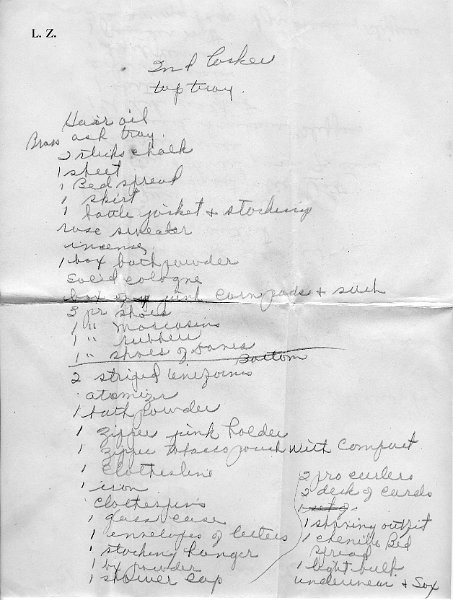 L. Z.
In d Locker
top tray.
Hair oil
Brass ash tray.
2 sticks chalk
1 sheet
1 Bed spread
1 skirt
1 battle jacket + stocking
rose sweater
incense
1 box bath powder
Solid cologne
box pink Corn pads + such
3 pr shoes
1 " Moccasins
1 " rubbers
1 " shoes of
Bottom
2 striped Uniforms
atomizer
1 bath powder
1 zipper pink holder
1 zipper tobacco pouch with Compact
1 Clothesline
1 iron
Clothespins
1 glass case
1 envelopes of letters
1 stocking hanger
1 bx powder
1 shower cap
2 pro curlers
2 deck of cards
1 set of
1 outfit
1 chenille Bed
spread
1 light bulb
underwear + Sox